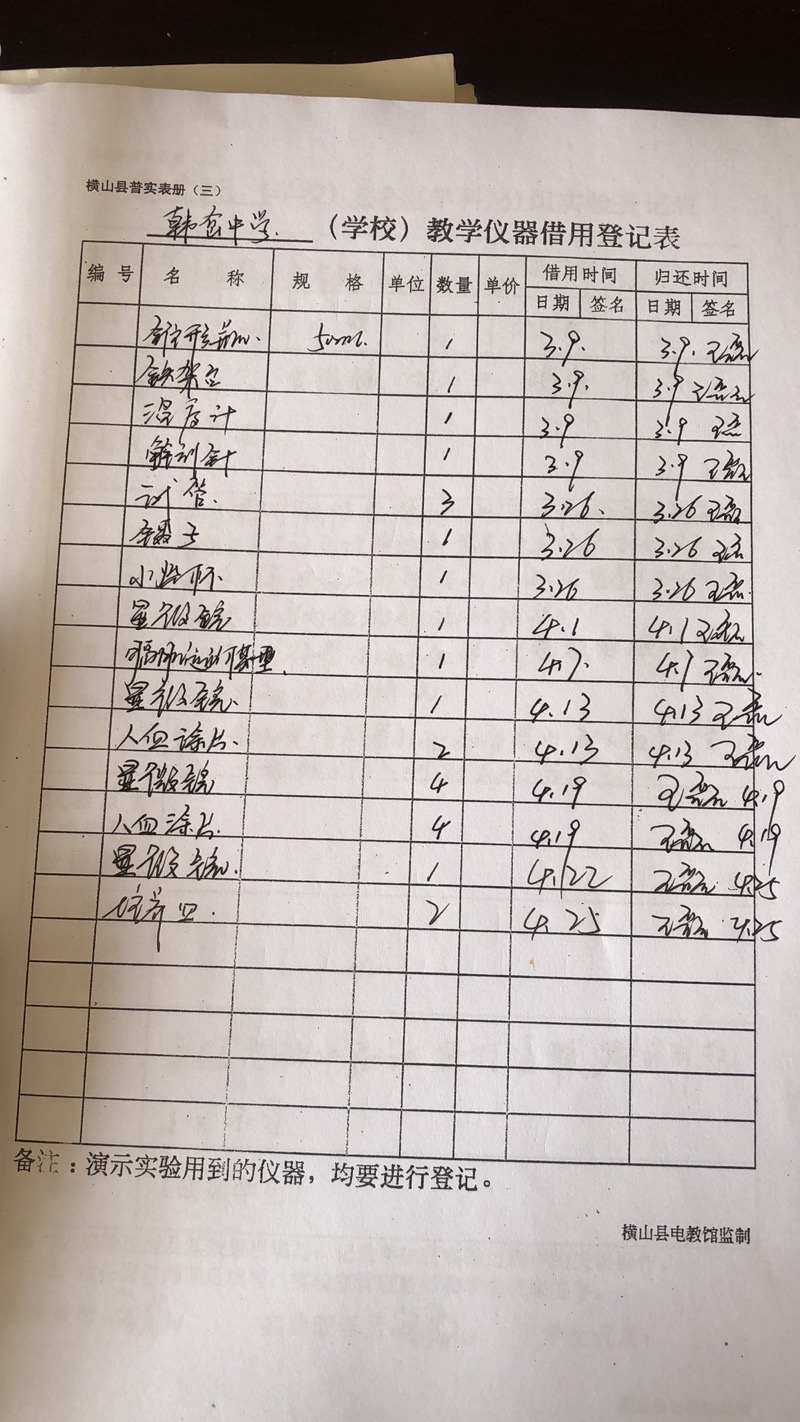 横山县普实表册（三）
韩岔中学 （学校）教学仪器借用登记表
编号 名称 规格 单位 数量 单价 借用时间 归还时间
日期 签名 日期 签名
锥形瓶 50ml. 1 3.9. 3.9.
铁架台 1 3.9. 3.9
温度计 1 3.9 3.9
解剖针 1 3.9 3.9
试管. 3 3.26. 3.26
镊子 1 3.26 3.26
小烧杯 1 3.26 3.26
显微镜 1 4.1 4.1
模型. 1 4.7. 4.7
显微镜. 1 4.13 4.13
人血涂片. 2 4.13 4.13
显微镜 4 4.19 4.19
人血涂片. 4 4.19 4.19
显微镜. 1 4.22 4.25
培养皿. 2 4.25 4.25
备注：演示实验用到的仪器，均要进行登记。
横山县电教馆监制